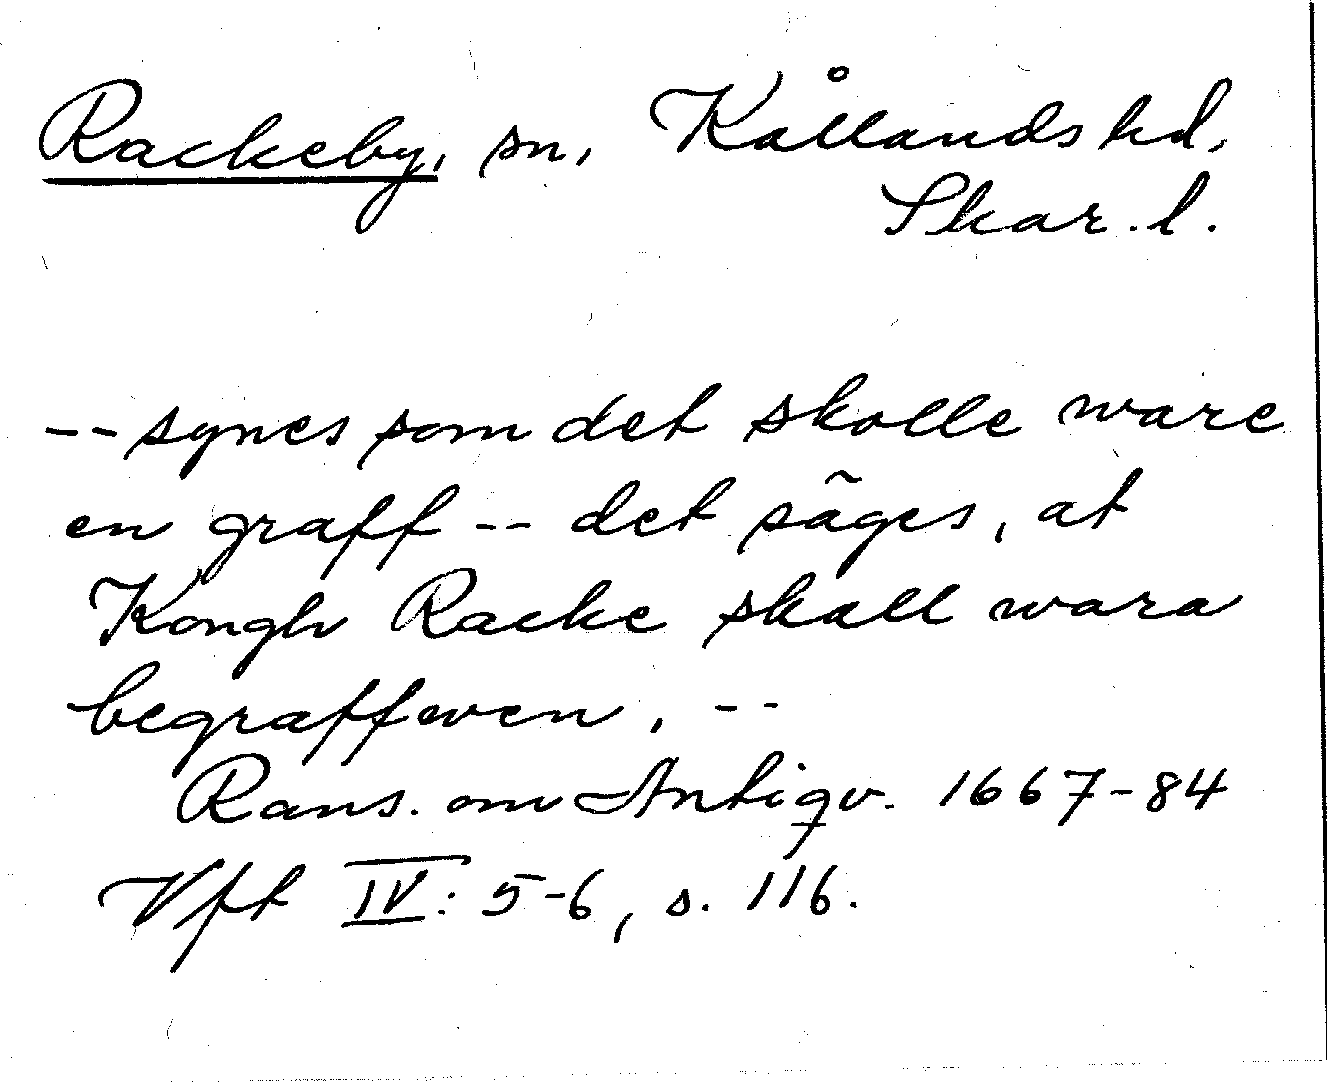 Rackeby, sn, Kållands hd,
Skar. l.
-- synes som det skolle ware
en graff -- det säges, at
Kongh Racke skall wara
begraffwen, --
Rans. om Antiqv. 1667-84
Vft IV: 5-6, s. 116.